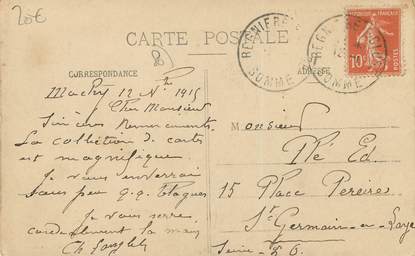 20€
CARTE POSTALE
CORRESPONDANCE
ADRESSE
REGNIÈRE
SOMME
SOMME
10
Machy 12 Nbre 1915
Cher Monsieur
Sincères Remerciements
La collection de cartes
est magnifique
Je vous enverrai
sous peu q.q. Plaques
Je vous serre
cordialement la main
Ch Langlet
Monsieur
Plé Ed.
15 Place Pereire
St Germain-en-Laye
Seine & O.